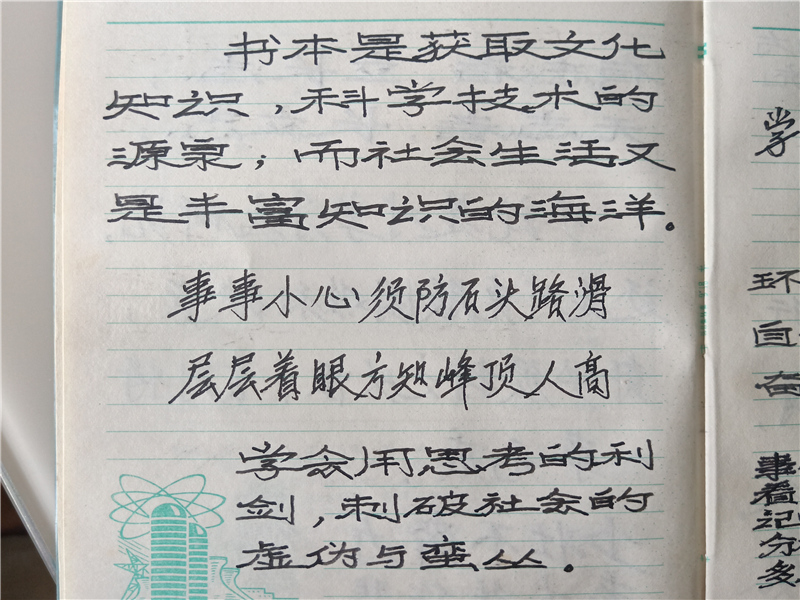 书本是获取文化
知识，科学技术的
源泉；而社会生活又
是丰富知识的海洋。
事事小心须防石头路滑
层层着眼方知峰顶人高
学会用思考的利
剑，刺破社会的
虚伪与蛮丛．
学
环
自
奋
事
着
记
分
多